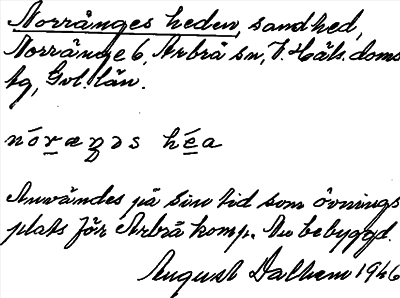 Norrånges heden, sandhed,
Norrånge 6, Arbrå sn, V. Häls. doms
tg, Gvl. län.
nóræŋəs héa
Användes på sin tid som övnings
plats för Arbrå komp. Nu bebyggd.
August Dalhem 1946